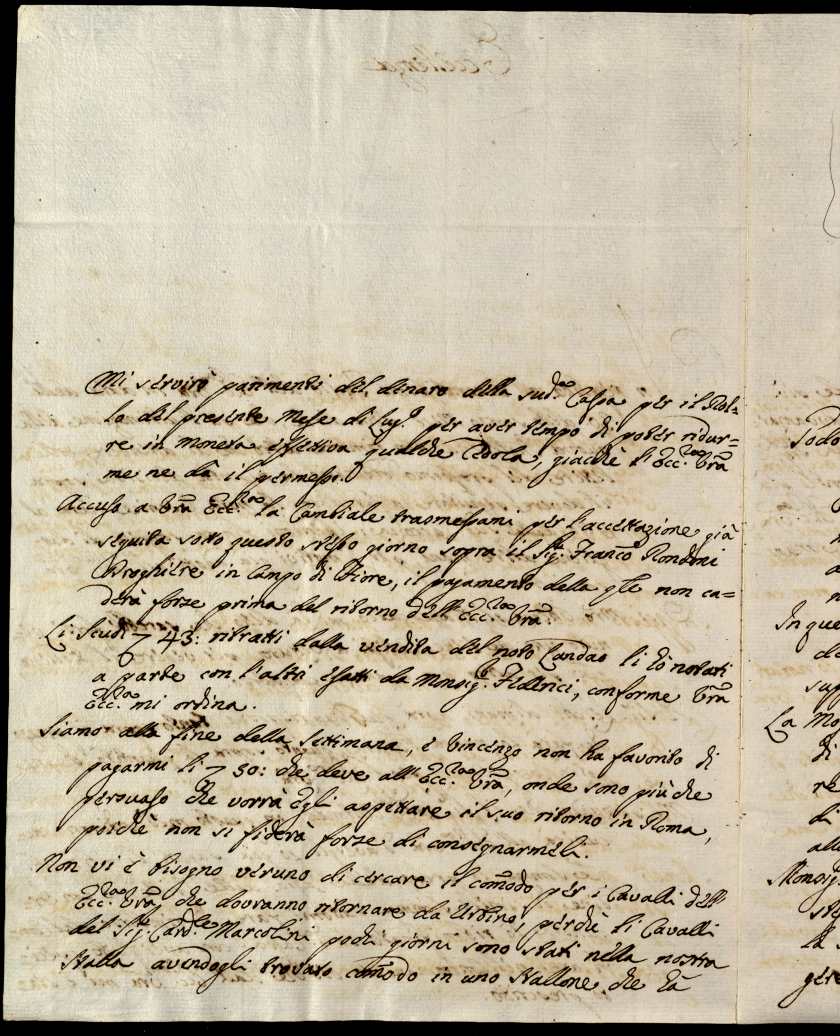 Eccellenza
Mi servirò parimenti del denaro della sud.ª Cassa per il Rol=
lo del presente Mese di Lug.º per aver tempo di poter ridur=
re in moneta effettiva qualche Cedola, giacchè l'Ecc.ª Vrã
me ne dà il permesso.
Accuso a Vrã Ecc.ª la Cambiale trasmessami per l'accettazione già
seguita sotto questo stesso giorno sopra il Sig. Franco Rondoni
Droghiere in Campo di Fiore, il pagamento della qle non ca=
derà forze prima del ritorno dell'Ecc.ª Vrã.
Li Scudi 43: ritratti dalla vendita del noto Landao li hò notati
a parte con l'altri esatti da Monsig. Federici, conforme Vrã
Ecc.ª mi ordina.
Siamo alla fine della Settimana, è Vincenzo non ha favorito di
pagarmi li 50: che deve all'Ecc.ª Vrã, onde sono più che
persuaso che vorrà Egli aspettare il suo ritorno in Roma,
poichè non si fiderà forze di consegnarmeli.
Non vi è bisogno veruno di cercare il comõdo per i Cavalli dell'
Ecc.ª Vrã, che dovranno ritornare da Urbino, perchè li Cavalli
del Sig. Card.le Marcolini pochi giorni sono stati nella nostra
Stalla avendogli trovato comõdo in uno Stallone che hà
In que
La Mo
di
Monsig.